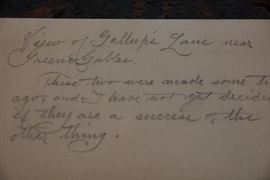 View of Gallup's Lane near
Green Gables.
These two were made some ti
ago, and I have not yet decided
if they are a success or the
other thing.